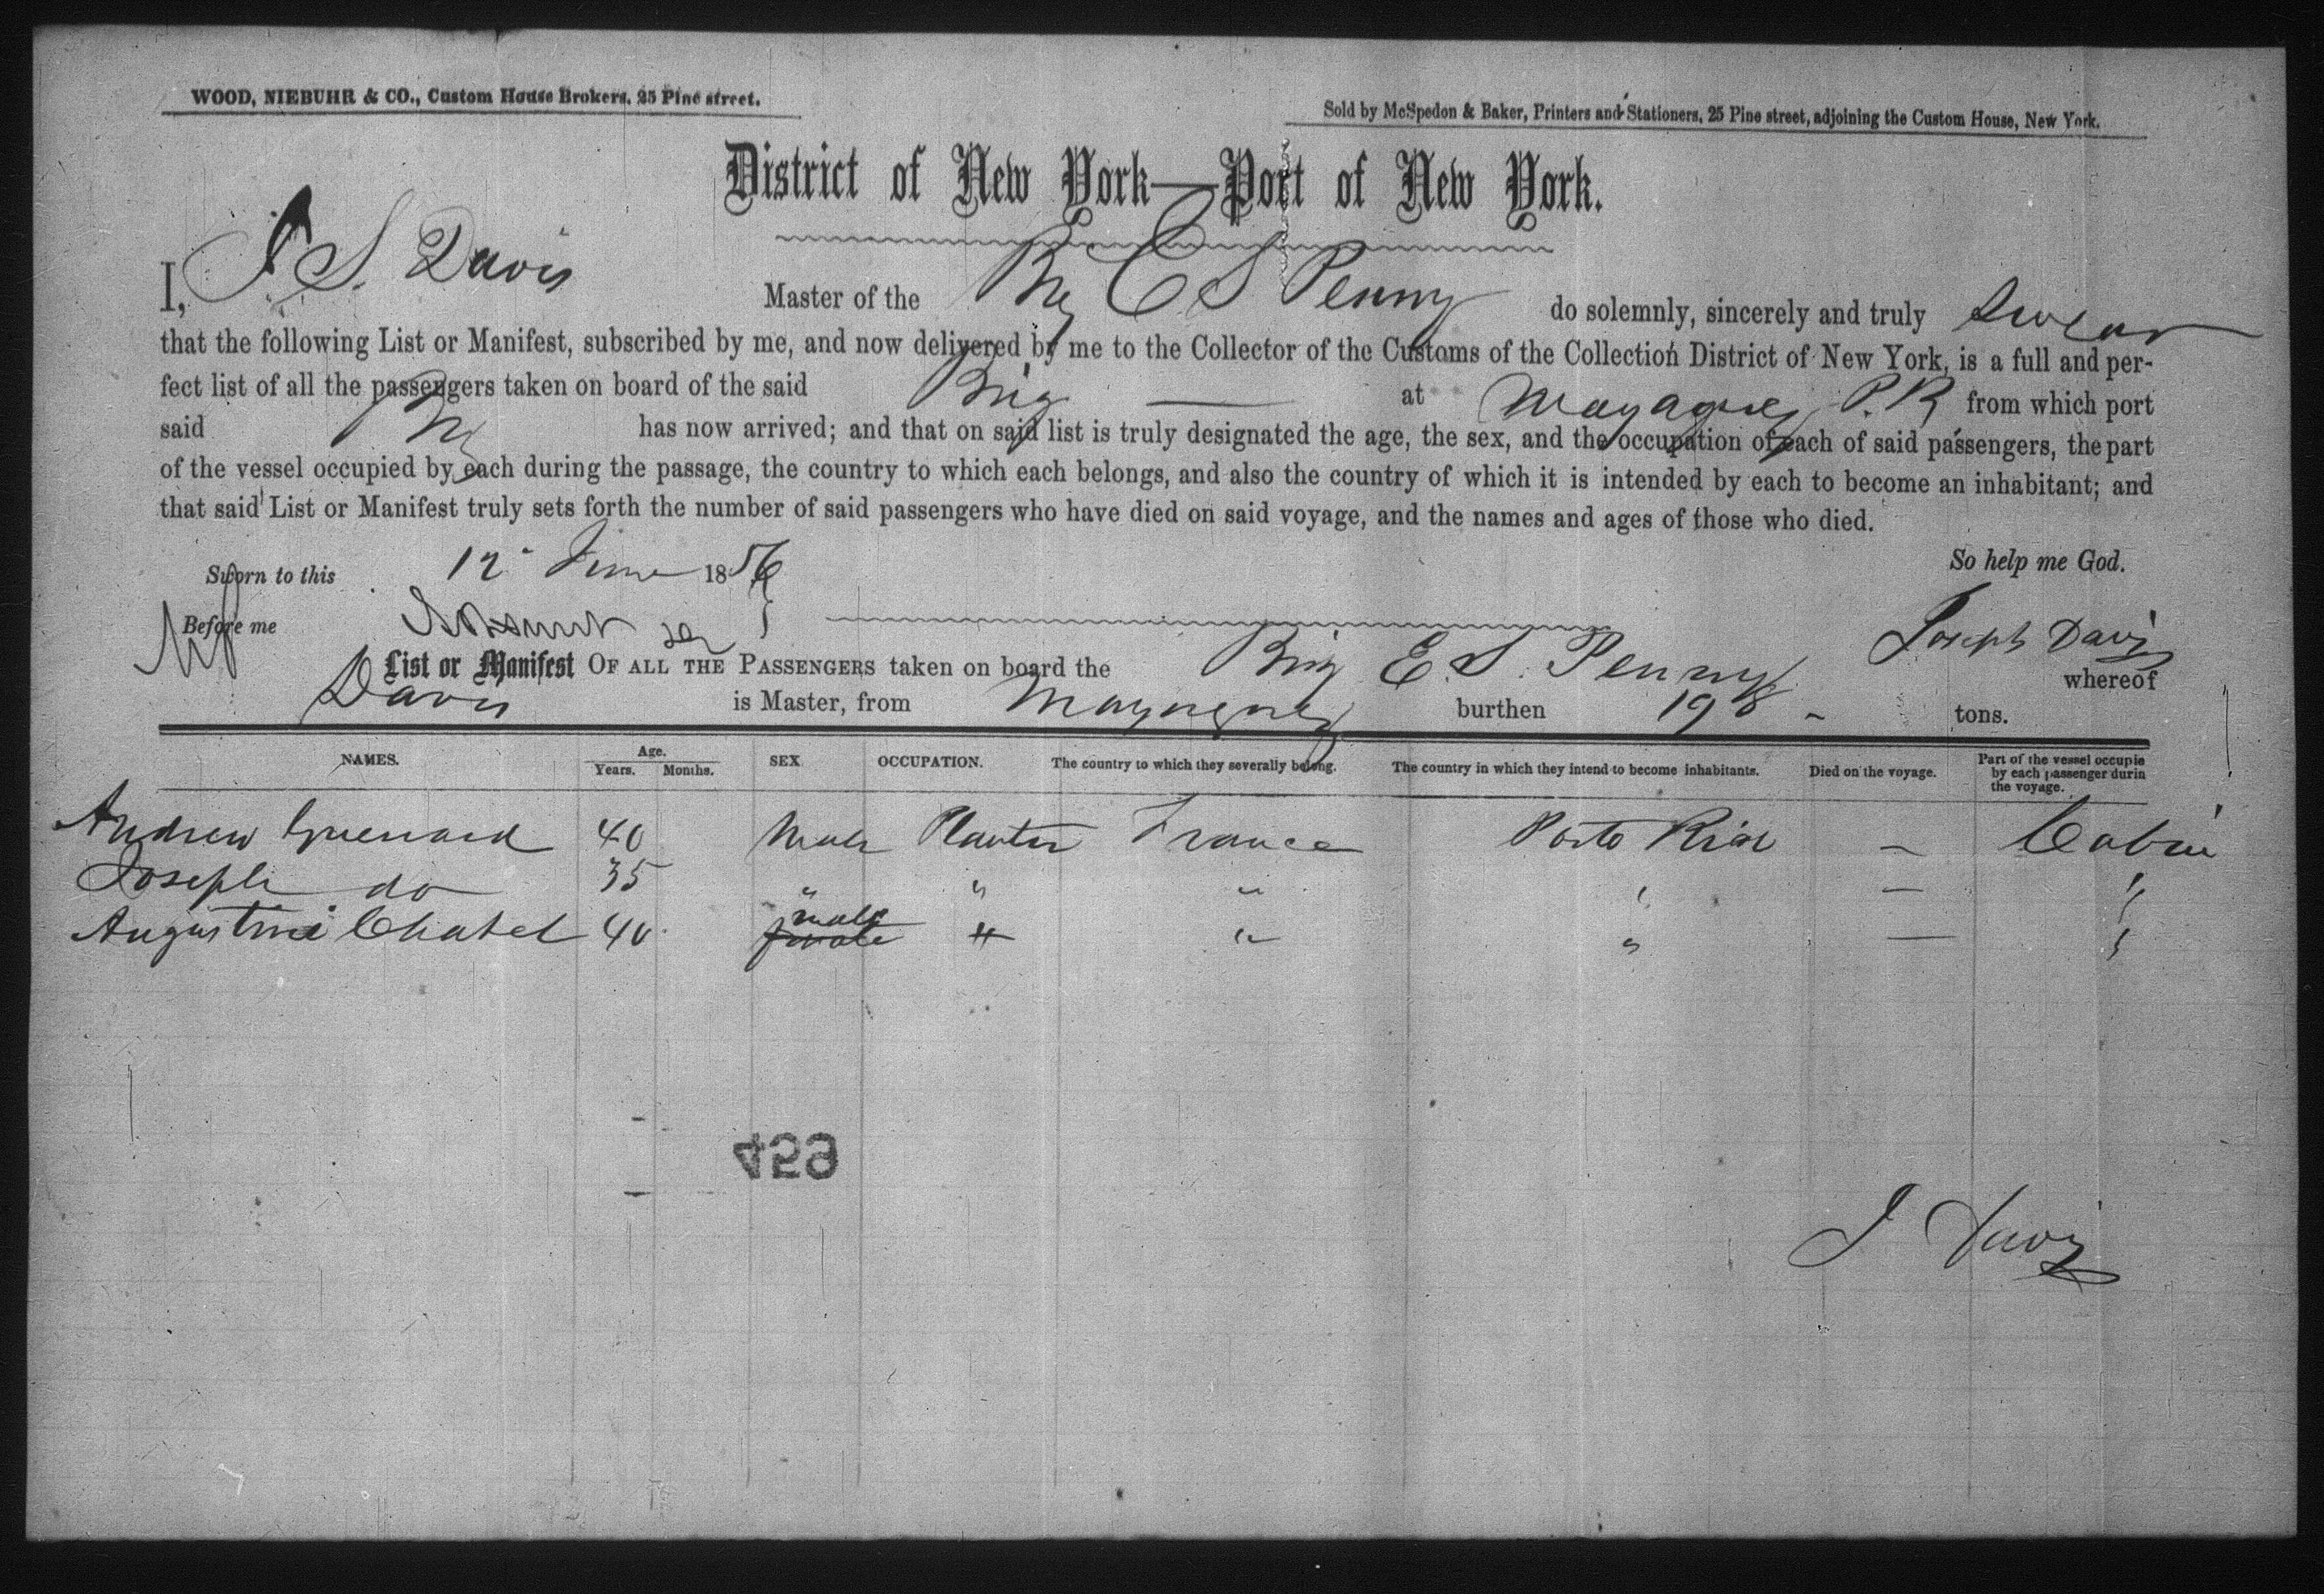 WOOD, NIEBUHR & CO., Custom House Brokers, 25 Pine street.
Sold by McSpedon & Baker, Printers and Stationers, 25 Pine street, adjoining the Custom House, New York.
District of New York—Port of New York.
I, J S. Davis Master of the Brig E S Penny do solemnly, sincerely and truly swear
that the following List or Manifest, subscribed by me, and now delivered by me to the Collector of the Customs of the Collection District of New York, is a full and per-
fect list of all the passengers taken on board of the said Brig — at Mayaguez P.R from which port
said Brig has now arrived; and that on said list is truly designated the age, the sex, and the occupation of each of said passengers, the part
of the vessel occupied by each during the passage, the country to which each belongs, and also the country of which it is intended by each to become an inhabitant; and
that said List or Manifest truly sets forth the number of said passengers who have died on said voyage, and the names and ages of those who died.
So help me God.
Sworn to this 12 June 1856
Before me
Joseph Davis
List or Manifest OF ALL THE PASSENGERS taken on board the Brig E. S. Penny whereof
Davis is Master, from Mayaguez burthen 198 - tons.
NAMES. Age. Years. Months. SEX. OCCUPATION. The country to which they severally belong. The country in which they intend to become inhabitants. Died on the voyage. Part of the vessel occupie by each passenger durin the voyage.
Andrew Guenard 40 Male Planter France Porto Rico — Cabin
Joseph do 35 " " " " — "
Augustine Chatel 40 male female " " " — "
459
J Davis